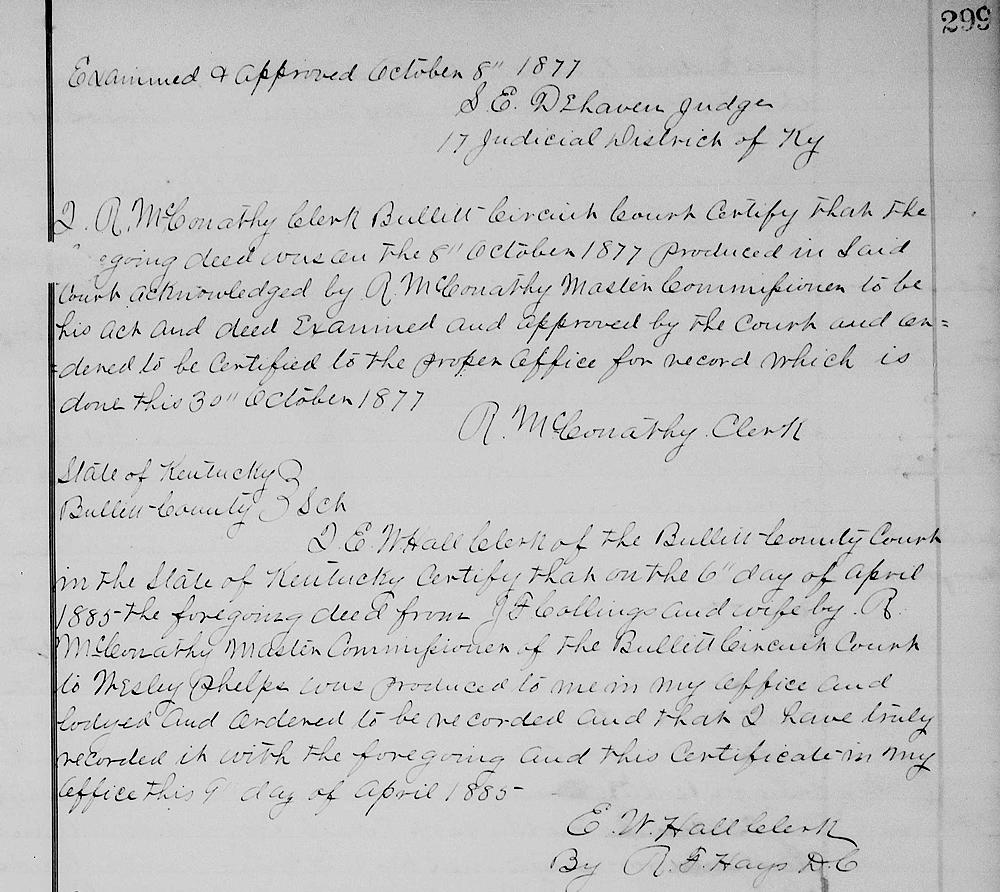 299
Examined & approved October 8" 1877
S. E. DEhaven Judge
17 Judicial District of Ky
I. R. McConathy Clerk Bullitt Circuit Court Certify that the
going deed was on the 8" October 1877 produced in Said
Court acknowledged by R. McConathy Master Commissioner to be
his act and deed Examined and approved by the Court and or=
=dered to be Certified to the proper office for record which is
done this 30" October 1877
R. McConathy. Clerk
State of Kentucky
Bullitt County Sct
I E. W Hall Clerk of the Bullitt County Court
in the State of Kentucky Certify that on the 6" day of April
1885 the foregoing deed from J F Collings and wife by R.
McConathy Master Commissioner of the Bullitt Circuit Court
to Wesley Phelps was produced to me in my office and
lodged and ordered to be recorded and that I have truly
recorded it with the foregoing and this Certificate in my
office this 9" day of April 1885
E. W. Hall Clerk
By R. F. Hays D. C